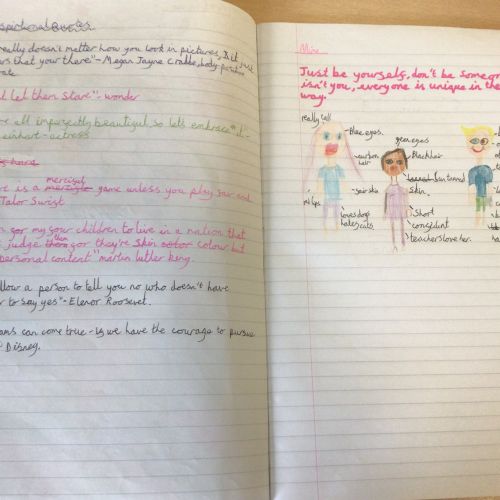 spirational Quotes
really doesn't matter how you look in pictures, it just
rs that your there"- Megan Jayne Crabbe, body-positive
rate
l let them stare"- wonder
re all imperfectly beautiful so lets embrace it -
einhart- actress
merciful
re is a game unless you play fair and
Talor Swist
n for my four children to live in a nation that
them
t judge for they're Skin colour but
personal content" martin luther king.
llow a person to tell you no who doesn't have
er to say yes"- Elenor Roosevelt.
ams can come true - if we have the courage to pursue
Disney.
Mine
Just be yourself, don't be someone
isn't you, everyone is unique in the
way.
really tall
blue eyes.
green eyes
auburn hair
Black hair
tanned
Skin.
fair skin
red lips
loves dogs
hates cats.
Short
confident
teachers love her.